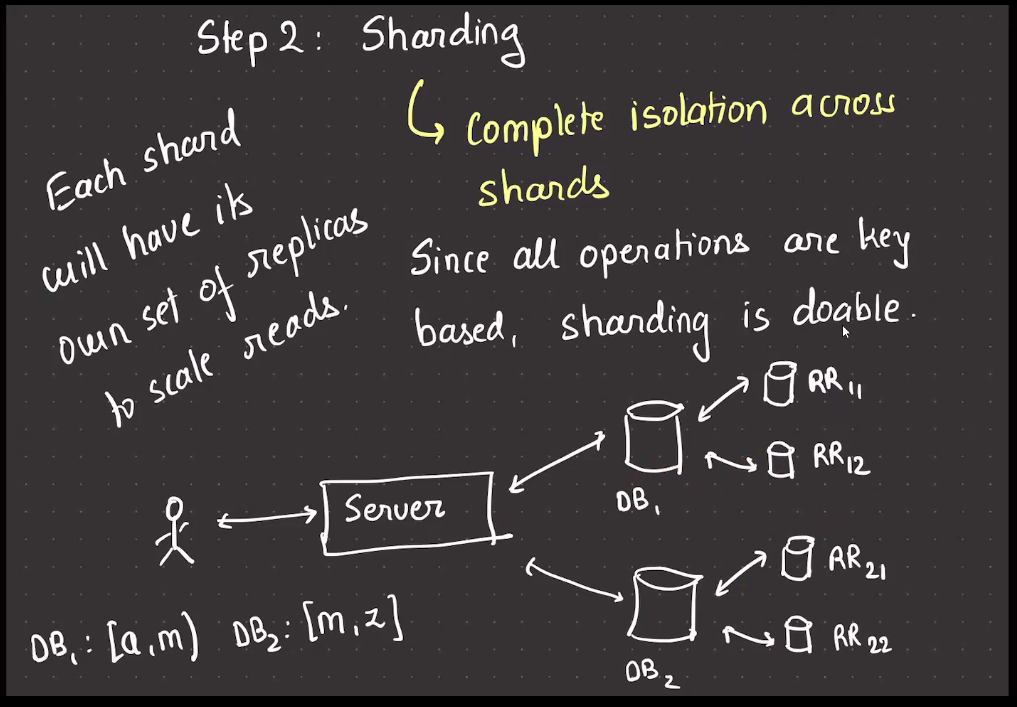 Step 2: Sharding
Complete isolation across
shards
Each shard
will have its
own set of replicas
to scale reads.
Since all operations are key
based, sharding is doable.
RR11
RR12
DB1
Server
RR21
RR22
DB2
DB1: [a,m) DB2: [m,z]